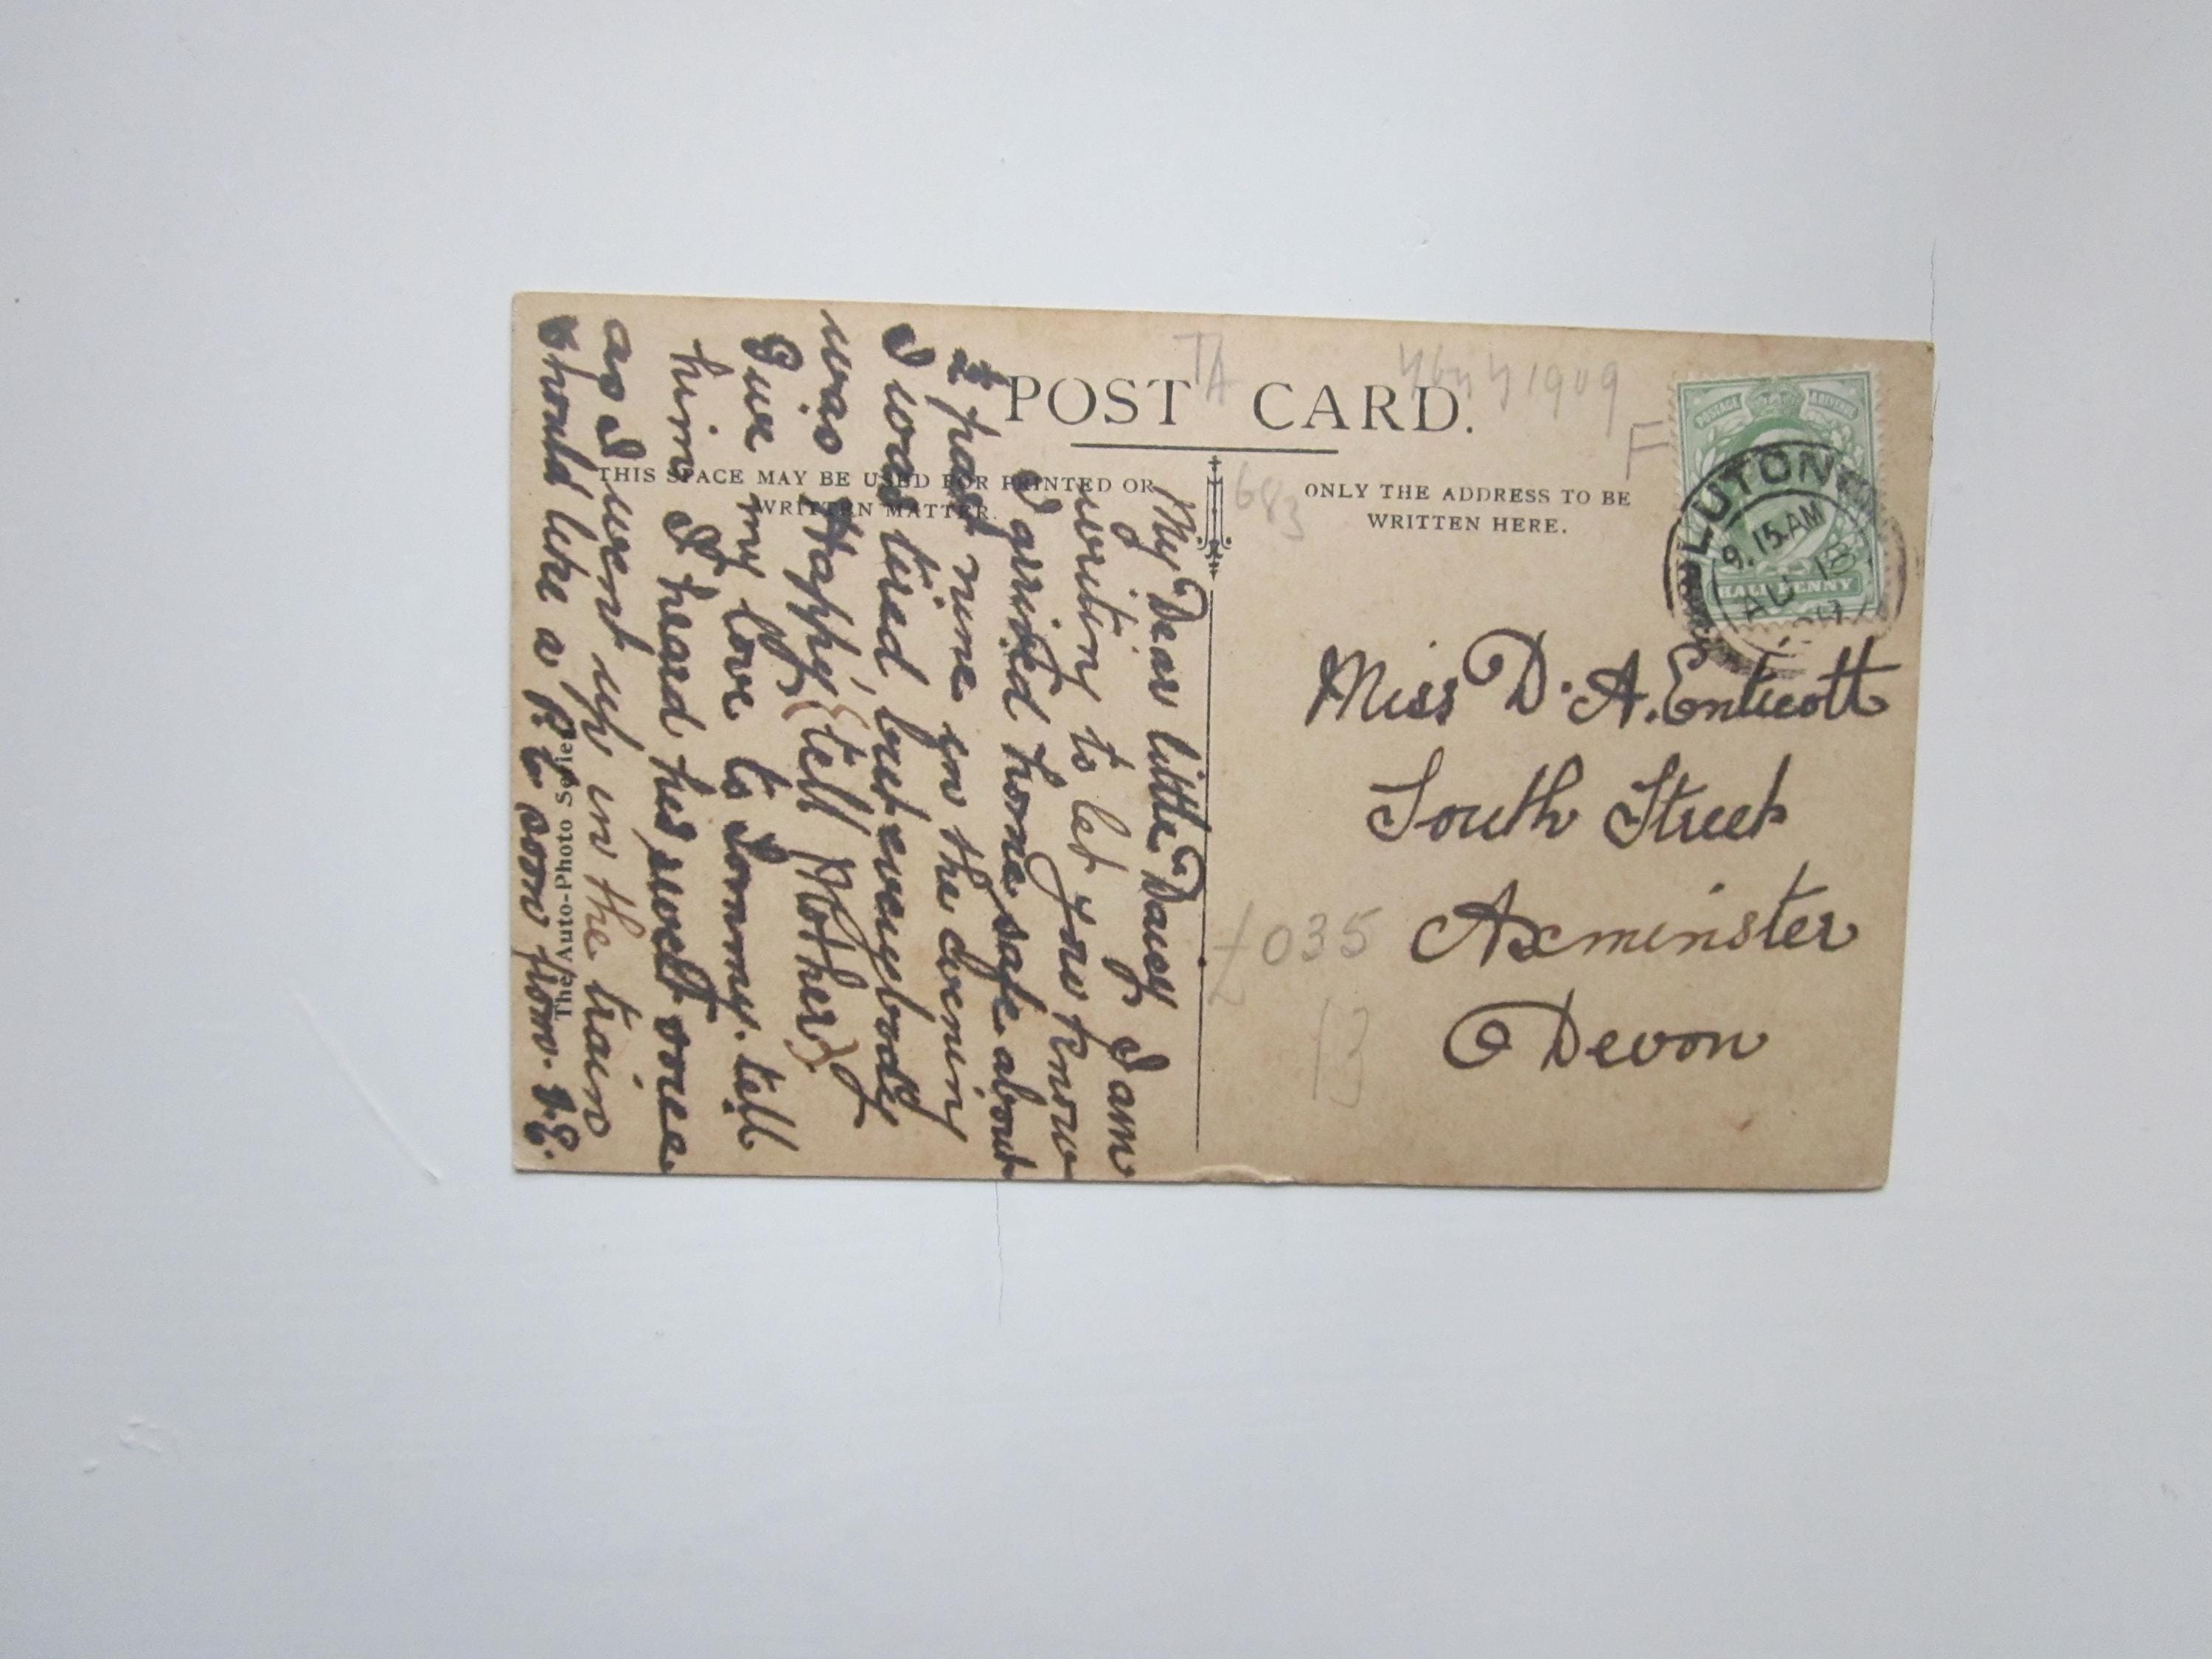 POST CARD.
THIS SPACE MAY BE USED FOR PRINTED OR
WRITTEN MATTER.
ONLY THE ADDRESS TO BE
WRITTEN HERE.
TA
1909
F
683
POSTAGE REVENUE
HALFPENNY
LUTON
9.15 AM
AU 18
Miss D. A. Enticott
South Street
Axminster
Devon
£035
13
My Dear little Daisy I am
writing to let you know
I arrived home safe about
½ past nine in the evening
I was tired, but everybody
was Happy, (tell Mother)
Give my love to Tommy. tell
him I heard his sweet voice
as I went up in the train
should like a P.C. soon from. J.E.
The Auto-Photo Series